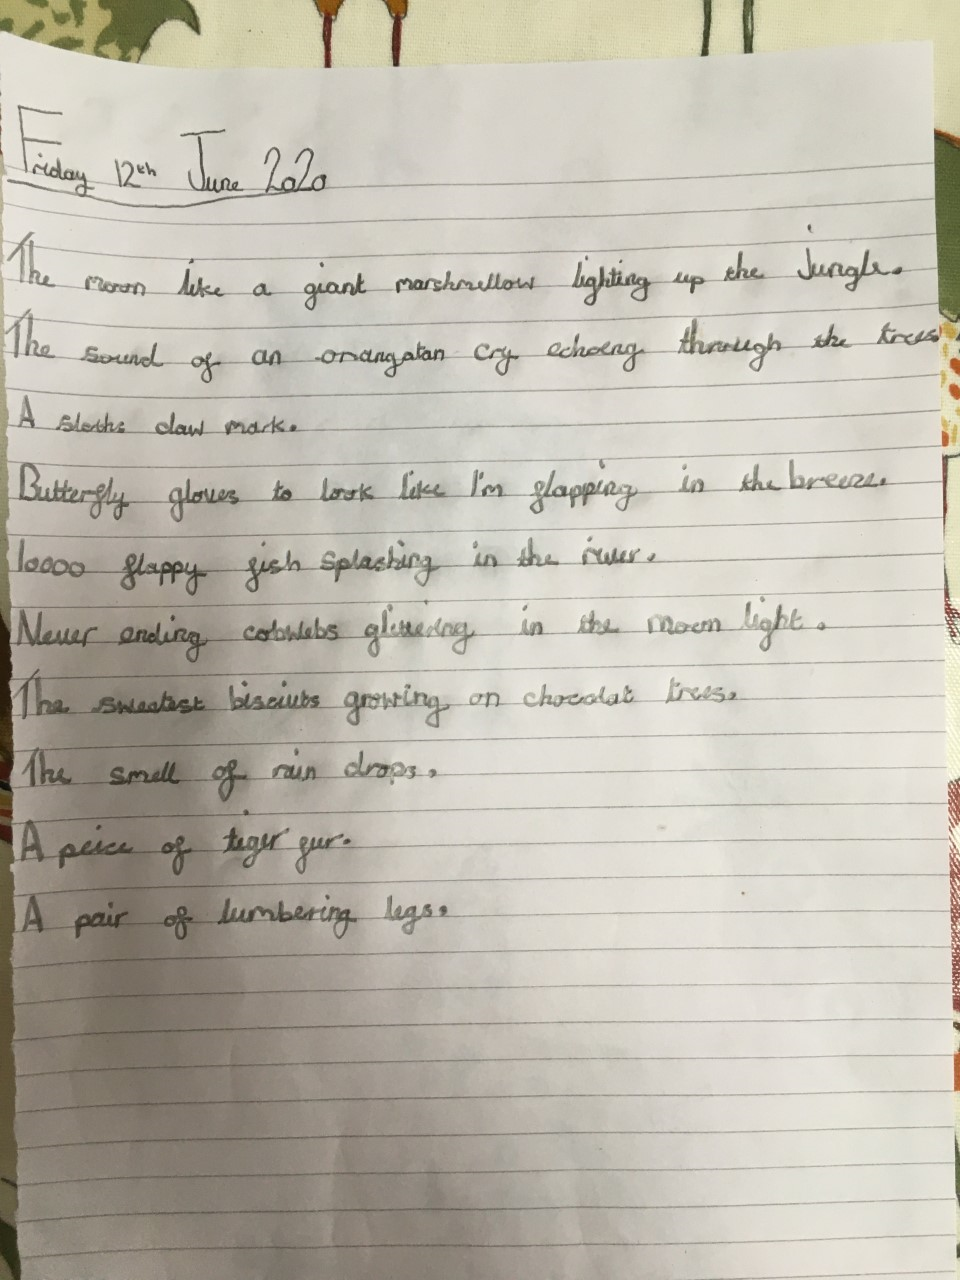 Friday 12th June 2020
The moon like a giant marshmellow lighting up the Jungle.
The sound of an orangatan cry echoeng through the trees
A sloths claw mark.
Butterfly gloves to look like I'm flapping in the breeze.
10000 flappy fish splashing in the river.
Never ending cobwebs in the moon light.
The sweetest growing on chocolat trees.
The smell of rain drops.
A peice of tiger fur.
A pair of lumbering legs.